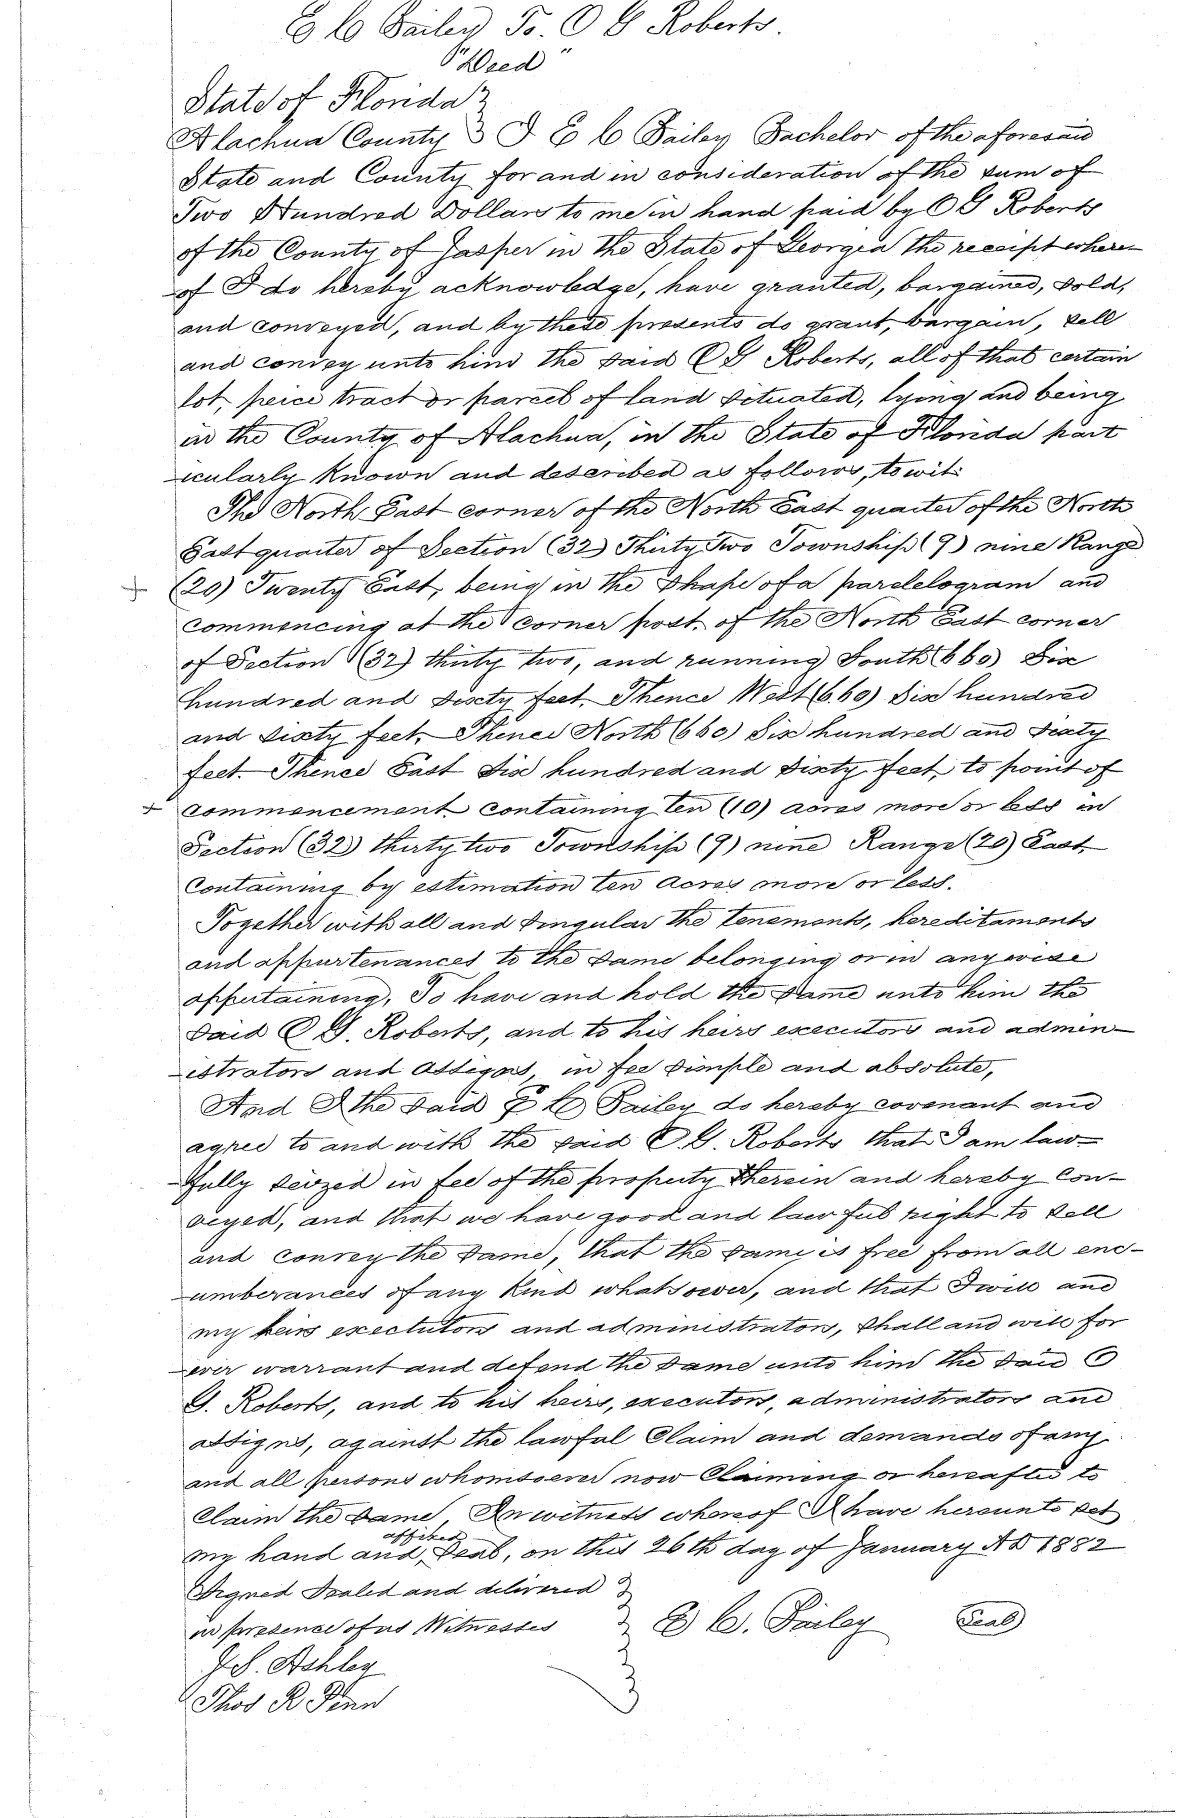 E C Bailey To. O G Roberts.
"Deed"
State of Florida
Alachua County I E C Bailey Bachelor of the aforesaid
State and County for and in consideration of the sum of
Two Hundred Dollars to me in hand paid by O G Roberts
of the County of Jasper in the State of Georgia the receipt where-
of I do hereby acknowledge, have granted, bargained, sold,
and conveyed, and by these presents do grant, bargain, sell
and convey unto him the said O G Roberts, all of that certain
lot, peice tract or parcel of land situated, lying and being
in the County of Alachua, in the State of Florida part
icularly known and described as follows, to wit:
The North East corner of the North East quarter of the North
East quarter of Section (32) Thirty Two Township (9) nine Range
+ (20) Twenty East, being in the shape of a paralelogram and
commencing at the corner post of the North East corner
of Section (32) thirty two, and running South (660) Six
hundred and sixty feet. Thence West (660) Six hundred
and sixty feet, Thence North (660) Six hundred and sixty
feet. Thence East six hundred and sixty feet, to point of
+ commencement containing ten (10) acres more or less in
Section (32) thirty two Township (9) nine Range (20) East
Containing by estimation ten acres more or less.
Together with all and singular the tenements, hereditaments
and appurtenances to the same belonging or in any wise
appertaining, To have and hold the same unto him the
said O G. Roberts, and to his heirs executors and admin-
istrators and assigns, in fee simple and absolute,
And I the said E C Bailey do hereby covenant and
agree to and with the said O. G. Roberts that I am law-
fully seized in fee of the property therein and hereby con-
veyed, and that we have good and lawful right to sell
and convey the same, that the same is free from all enc-
umberances of any kind whatsoever, and that I will and
my heirs exectutors and administrators, shall and will for
ever warrant and defend the same unto him the said O
G. Roberts, and to his heirs, executors, administrators and
assigns, against the lawful claim and demands of any
and all persons whomsoever now claiming or hereafter to
claim the same, In witness whereof I have hereunto set
my hand and affixed seal, on this 26th day of January AD 1882
Signed Sealed and delivered
in presence of us Witnesses E C. Bailey Seal
J. S. Ashley
Thos R Penn